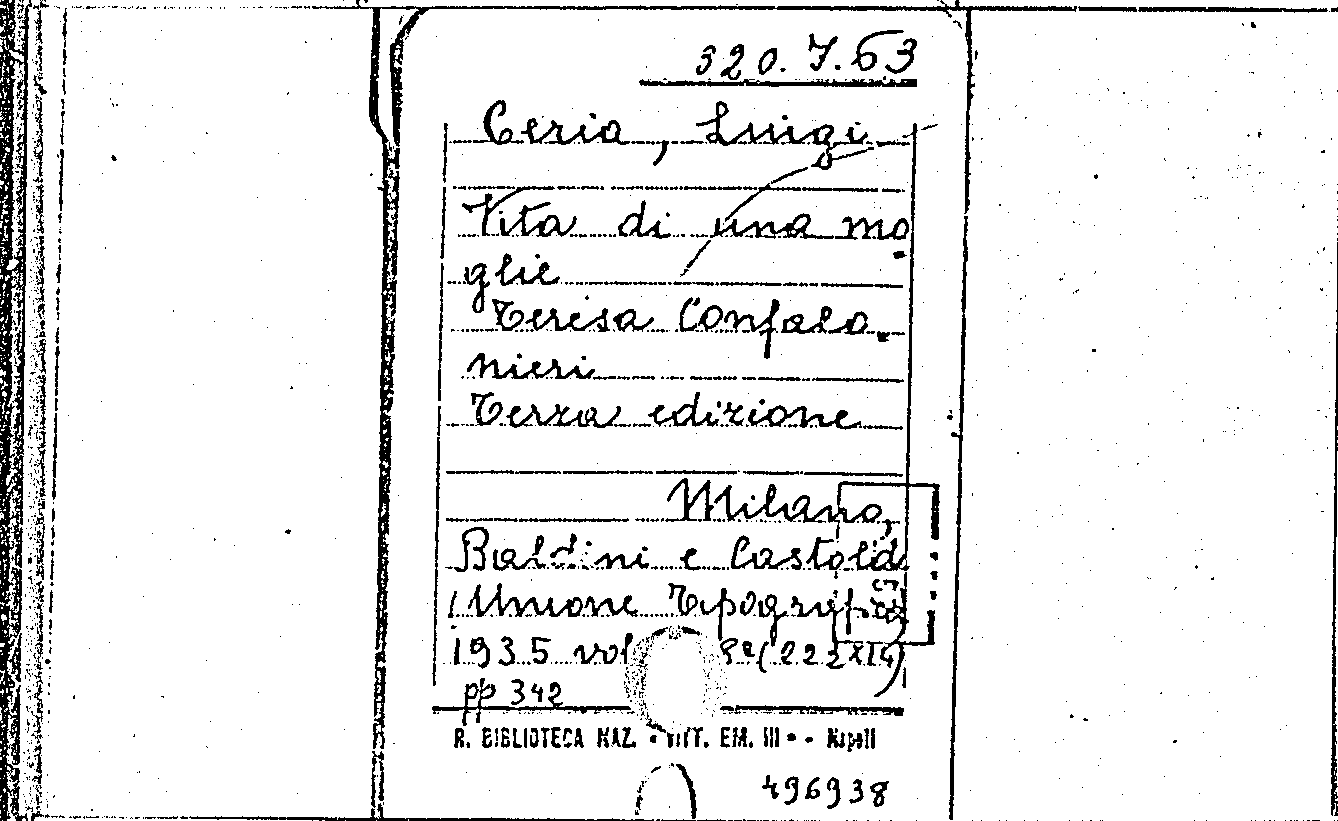 320.7.63
Ceria, Luigi
Vita di una mo
glie
Teresa Confalo.
nieri
Terza edizione
Milano,
Baldini e Castoldi
(Unione Tipografica)
1935 vol 8º (22 X 14)
pp 342
R. BIBLIOTECA NAZ. VITT. EM. III - Napoli
496938